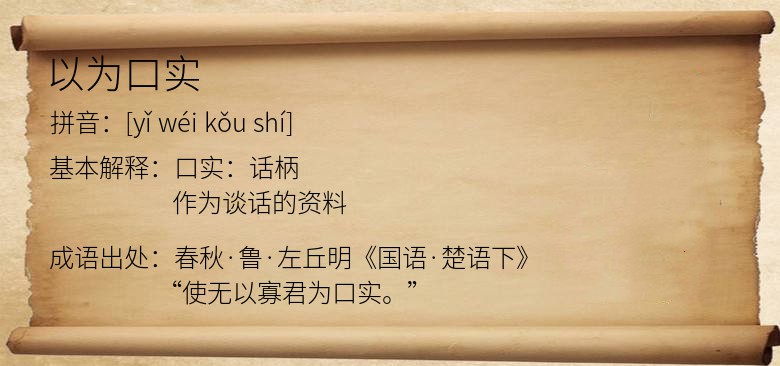 以为口实
拼音：[yǐ wéi kǒu shí]
基本解释：口实：话柄
作为谈话的资料
成语出处：春秋·鲁·左丘明《国语·楚语下》
“使无以寡君为口实。”